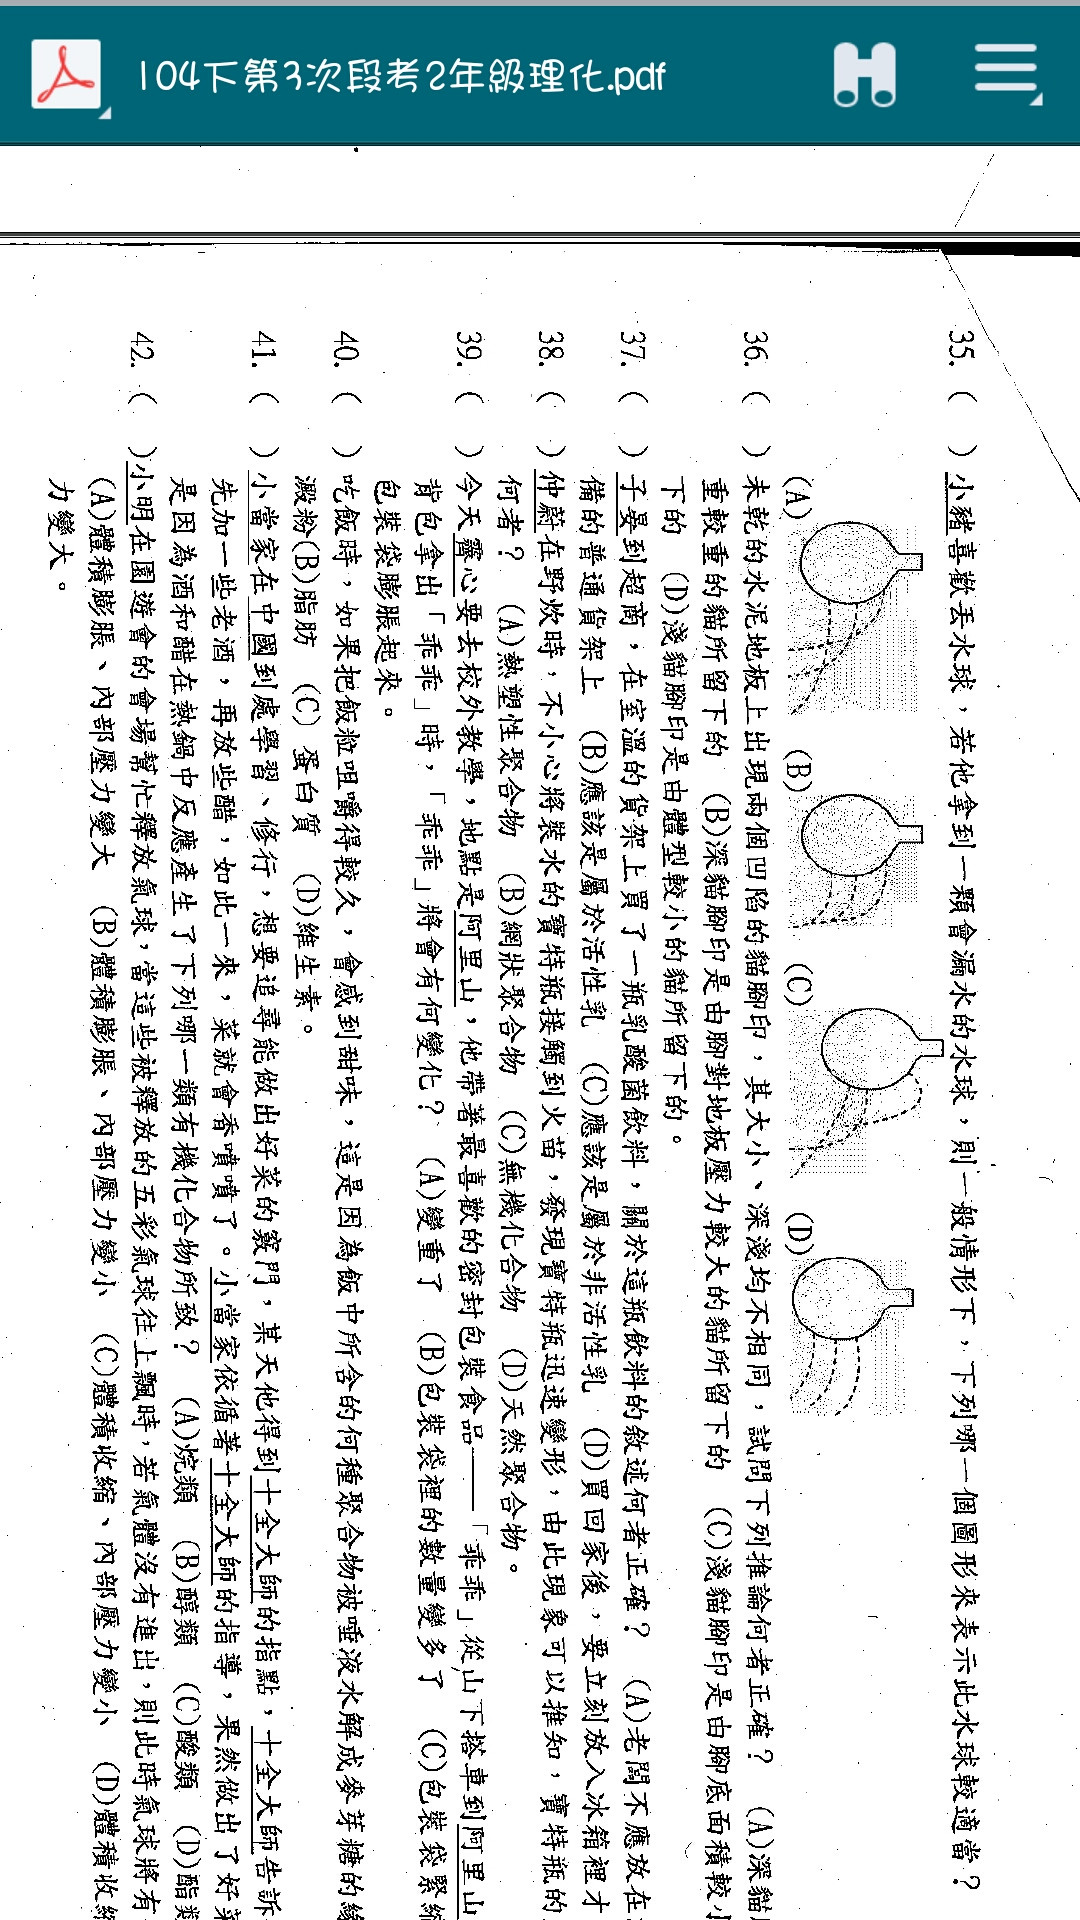 104下第3次段考2年級理化.pdf
35. (　) 小豬喜歡丟水球，若他拿到一顆會漏水的水球，則一般情形下，下列哪一個圖形來表示此水球較適當？
(A) (B) (C) (D)
36. (　) 未乾的水泥地板上出現兩個凹陷的貓腳印，其大小、深淺均不相同，試問下列推論何者正確？ (A)深貓
重較重的貓所留下的 (B)深貓腳印是由腳對地板壓力較大的貓所留下的 (C)淺貓腳印是由腳底面積較小
下的 (D)淺貓腳印是由體型較小的貓所留下的。
37. (　) 子晏到超商，在室溫的貨架上買了一瓶乳酸菌飲料，關於這瓶飲料的敘述何者正確？ (A)老闆不應放在
備的普通貨架上 (B)應該是屬於活性乳 (C)應該是屬於非活性乳 (D)買回家後，要立刻放入冰箱裡才
38. (　) 仲蔚在野炊時，不小心將裝水的寶特瓶接觸到火苗，發現寶特瓶迅速變形，由此現象可以推知，寶特瓶的
何者？ (A)熱塑性聚合物 (B)網狀聚合物 (C)無機化合物 (D)天然聚合物。
39. (　) 今天靈心要去校外教學，地點是阿里山，他帶著最喜歡的密封包裝食品——「乖乖」從山下搭車到阿里山
背包拿出「乖乖」時，「乖乖」將會有何變化？ (A)變重了 (B)包裝袋裡的數量變多了 (C)包裝袋緊縮
包裝袋膨脹起來。
40. (　) 吃飯時，如果把飯粒咀嚼得較久，會感到甜味，這是因為飯中所含的何種聚合物被唾液水解成麥芽糖的緣
澱粉(B)脂肪 (C)蛋白質 (D)維生素。
41. (　) 小當家在中國到處學習、修行，想要追尋能做出好菜的竅門，某天他得到十全大師的指點，十全大師告訴
先加一些老酒，再放些醋，如此一來，菜就會香噴噴了。小當家依循著十全大師的指導，果然做出了好菜
是因為酒和醋在熱鍋中反應產生了下列哪一類有機化合物所致？ (A)烷類 (B)醇類 (C)酸類 (D)酯類
42. (　)小明在園遊會的會場幫忙釋放氣球，當這些被釋放的五彩氣球往上飄時，若氣體沒有進出，則此時氣球將有
(A)體積膨脹、內部壓力變大 (B)體積膨脹、內部壓力變小 (C)體積收縮、內部壓力變小 (D)體積收縮
力變大。